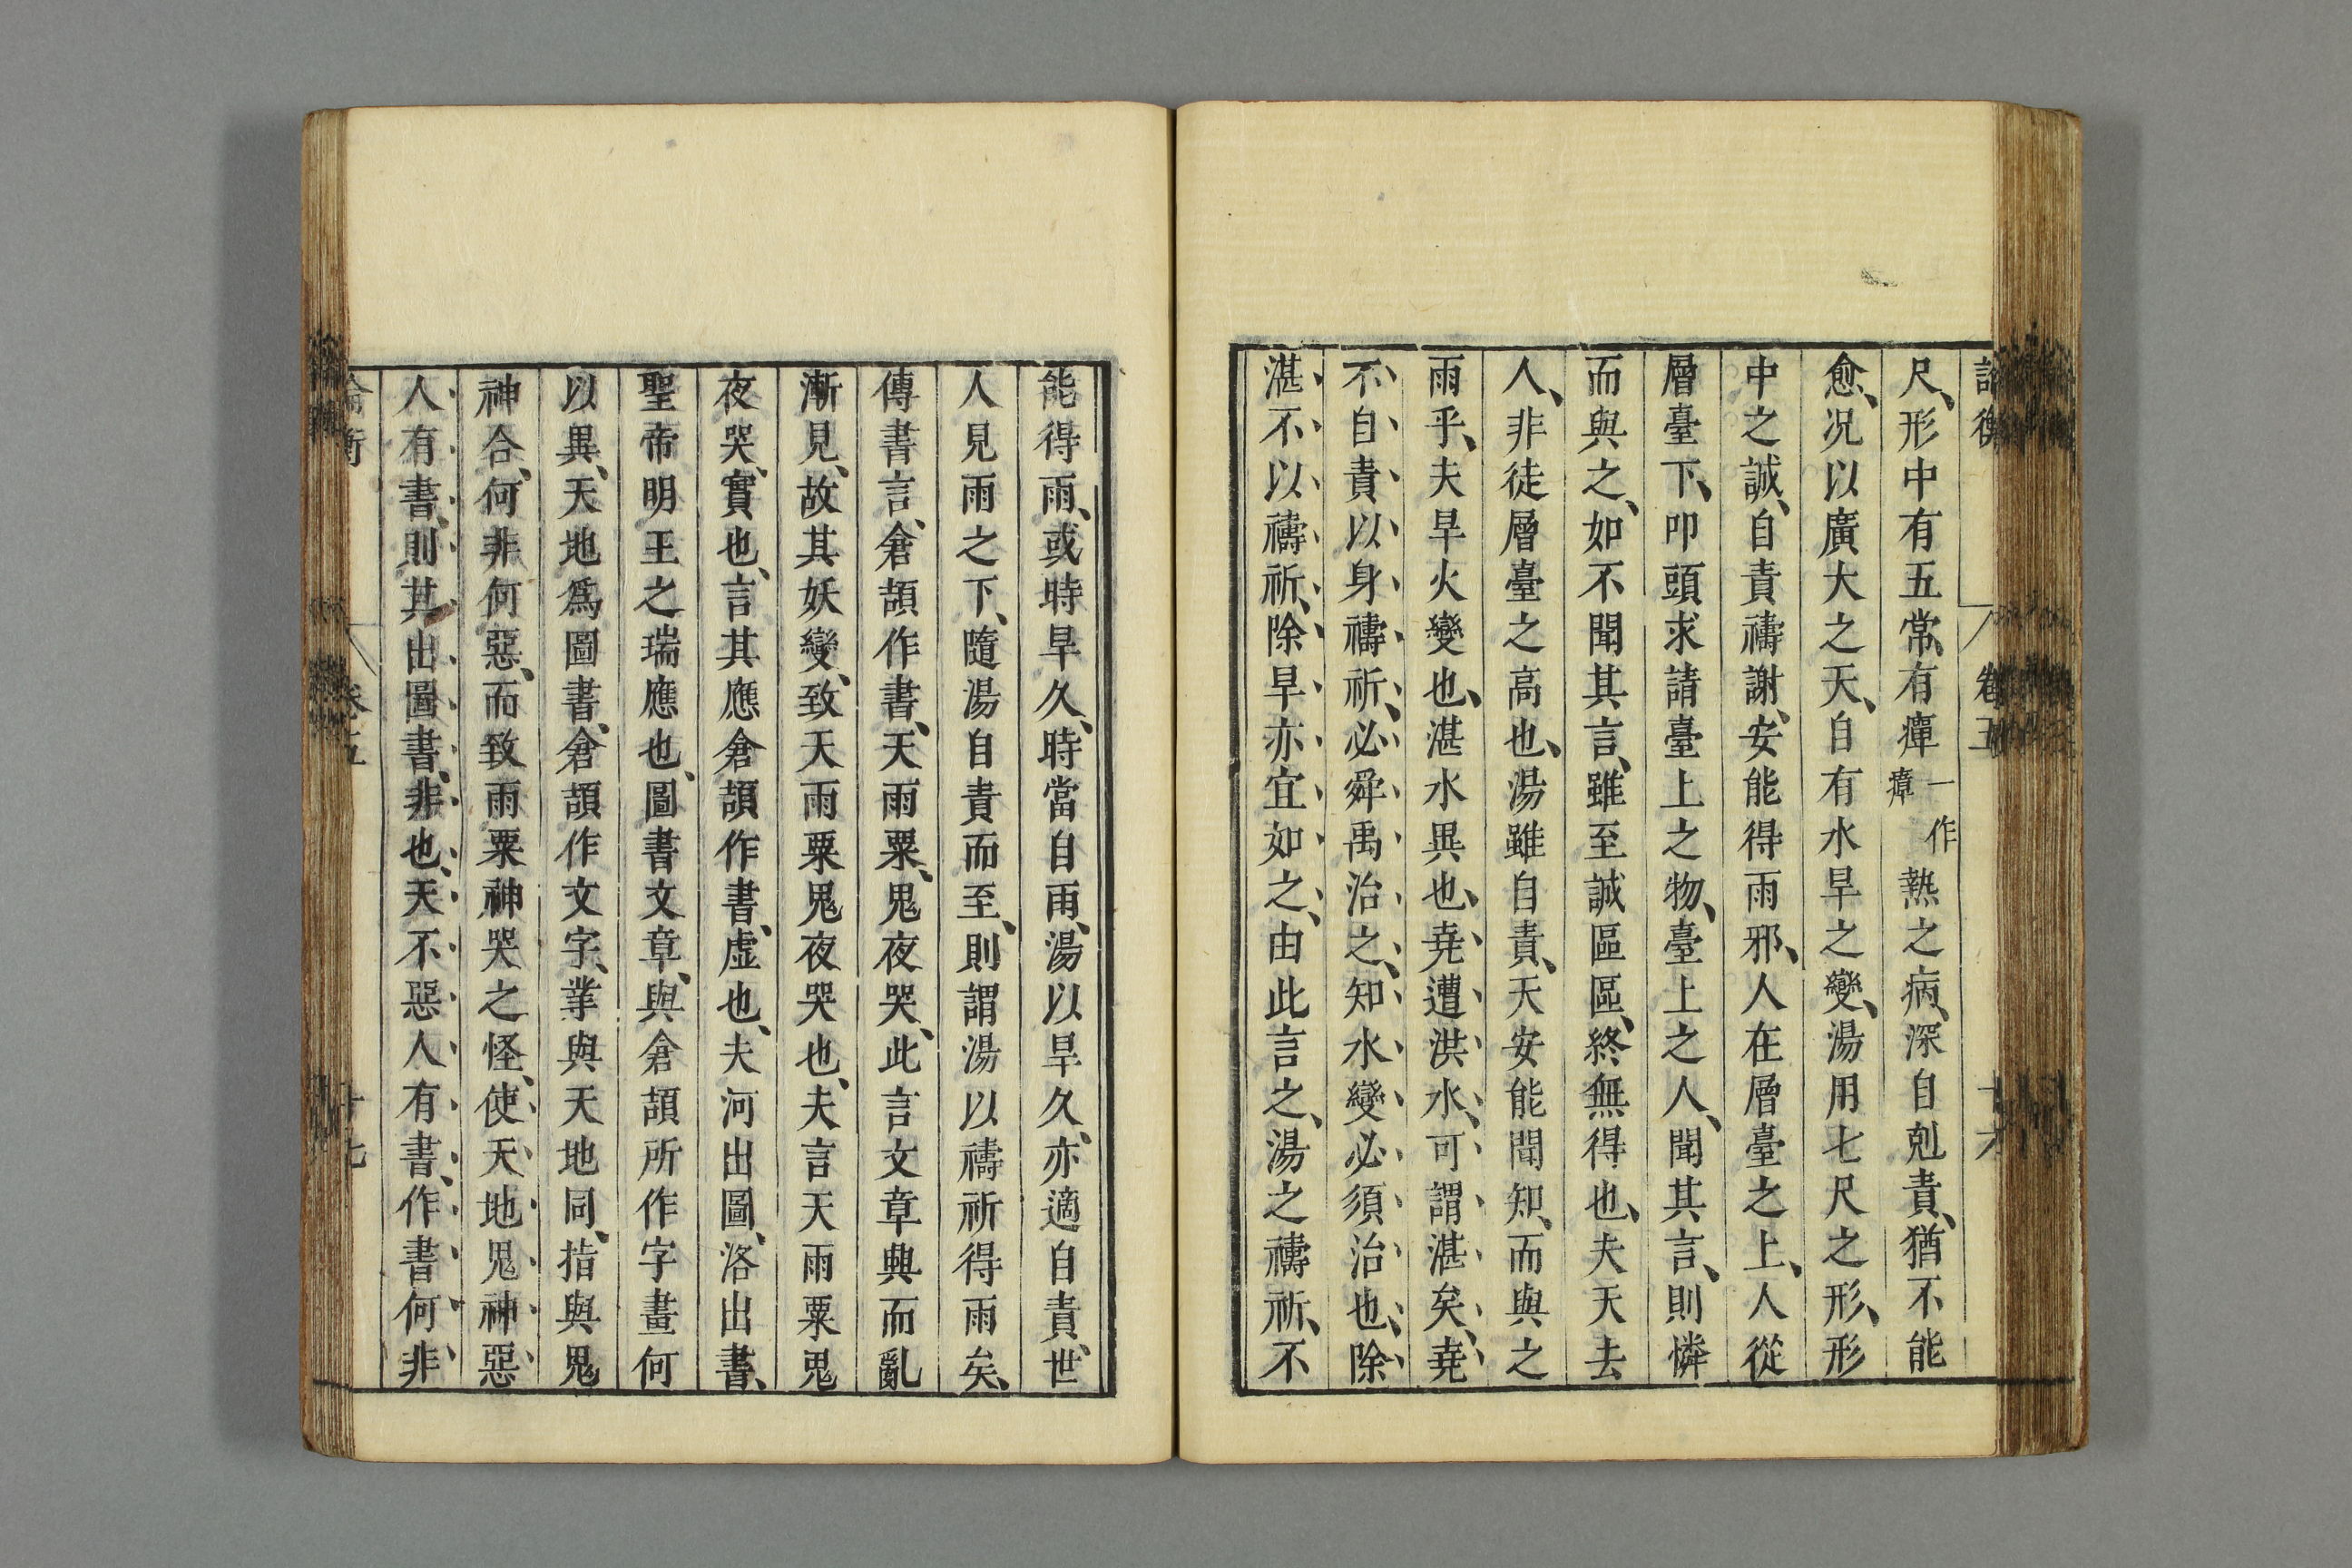 論衡 卷五 十六
尺、形中有五常、有癉一作瘴熱之病、深自剋責、猶不能
愈、况以廣大之天、自有水旱之變、湯用七尺之形、形
中之誠、自責禱謝、安能得雨邪、人在層臺之上、人從
層臺下、叩頭求請臺上之物、臺上之人、聞其言、則憐
而與之、如不聞其言、雖至誠區區、終無得也、夫天去
人、非徒層臺之高也、湯雖自責、天安能聞知、而與之
雨乎、夫旱火變也、湛水異也、堯遭洪水、可謂湛矣、堯
不自責以身禱祈、必舜禹治之、知水變必須治也、除
湛不以禱祈、除旱亦宜如之、由此言之、湯之禱祈、不
能得雨、或時旱久、時當自雨、湯以旱久、亦適自責、世
人見雨之下、隨湯自責而至、則謂湯以禱祈得雨矣、
傳書言、倉頡作書、天雨粟、鬼夜哭、此言文章興而亂
漸見、故其妖變、致天雨粟鬼夜哭也、夫言天雨粟鬼
夜哭、實也、言其應倉頡作書、虛也、夫河出圖、洛出書、
聖帝明王之瑞應也、圖書文章、與倉頡所作字畫何
以異、天地爲圖書、倉頡作文字、業與天地同、指與鬼
神合、何非何惡、而致雨粟神哭之怪、使天地鬼神惡
人有書、則其出圖書、非也、天不惡人有書、作書何非
論衡 卷五 十七